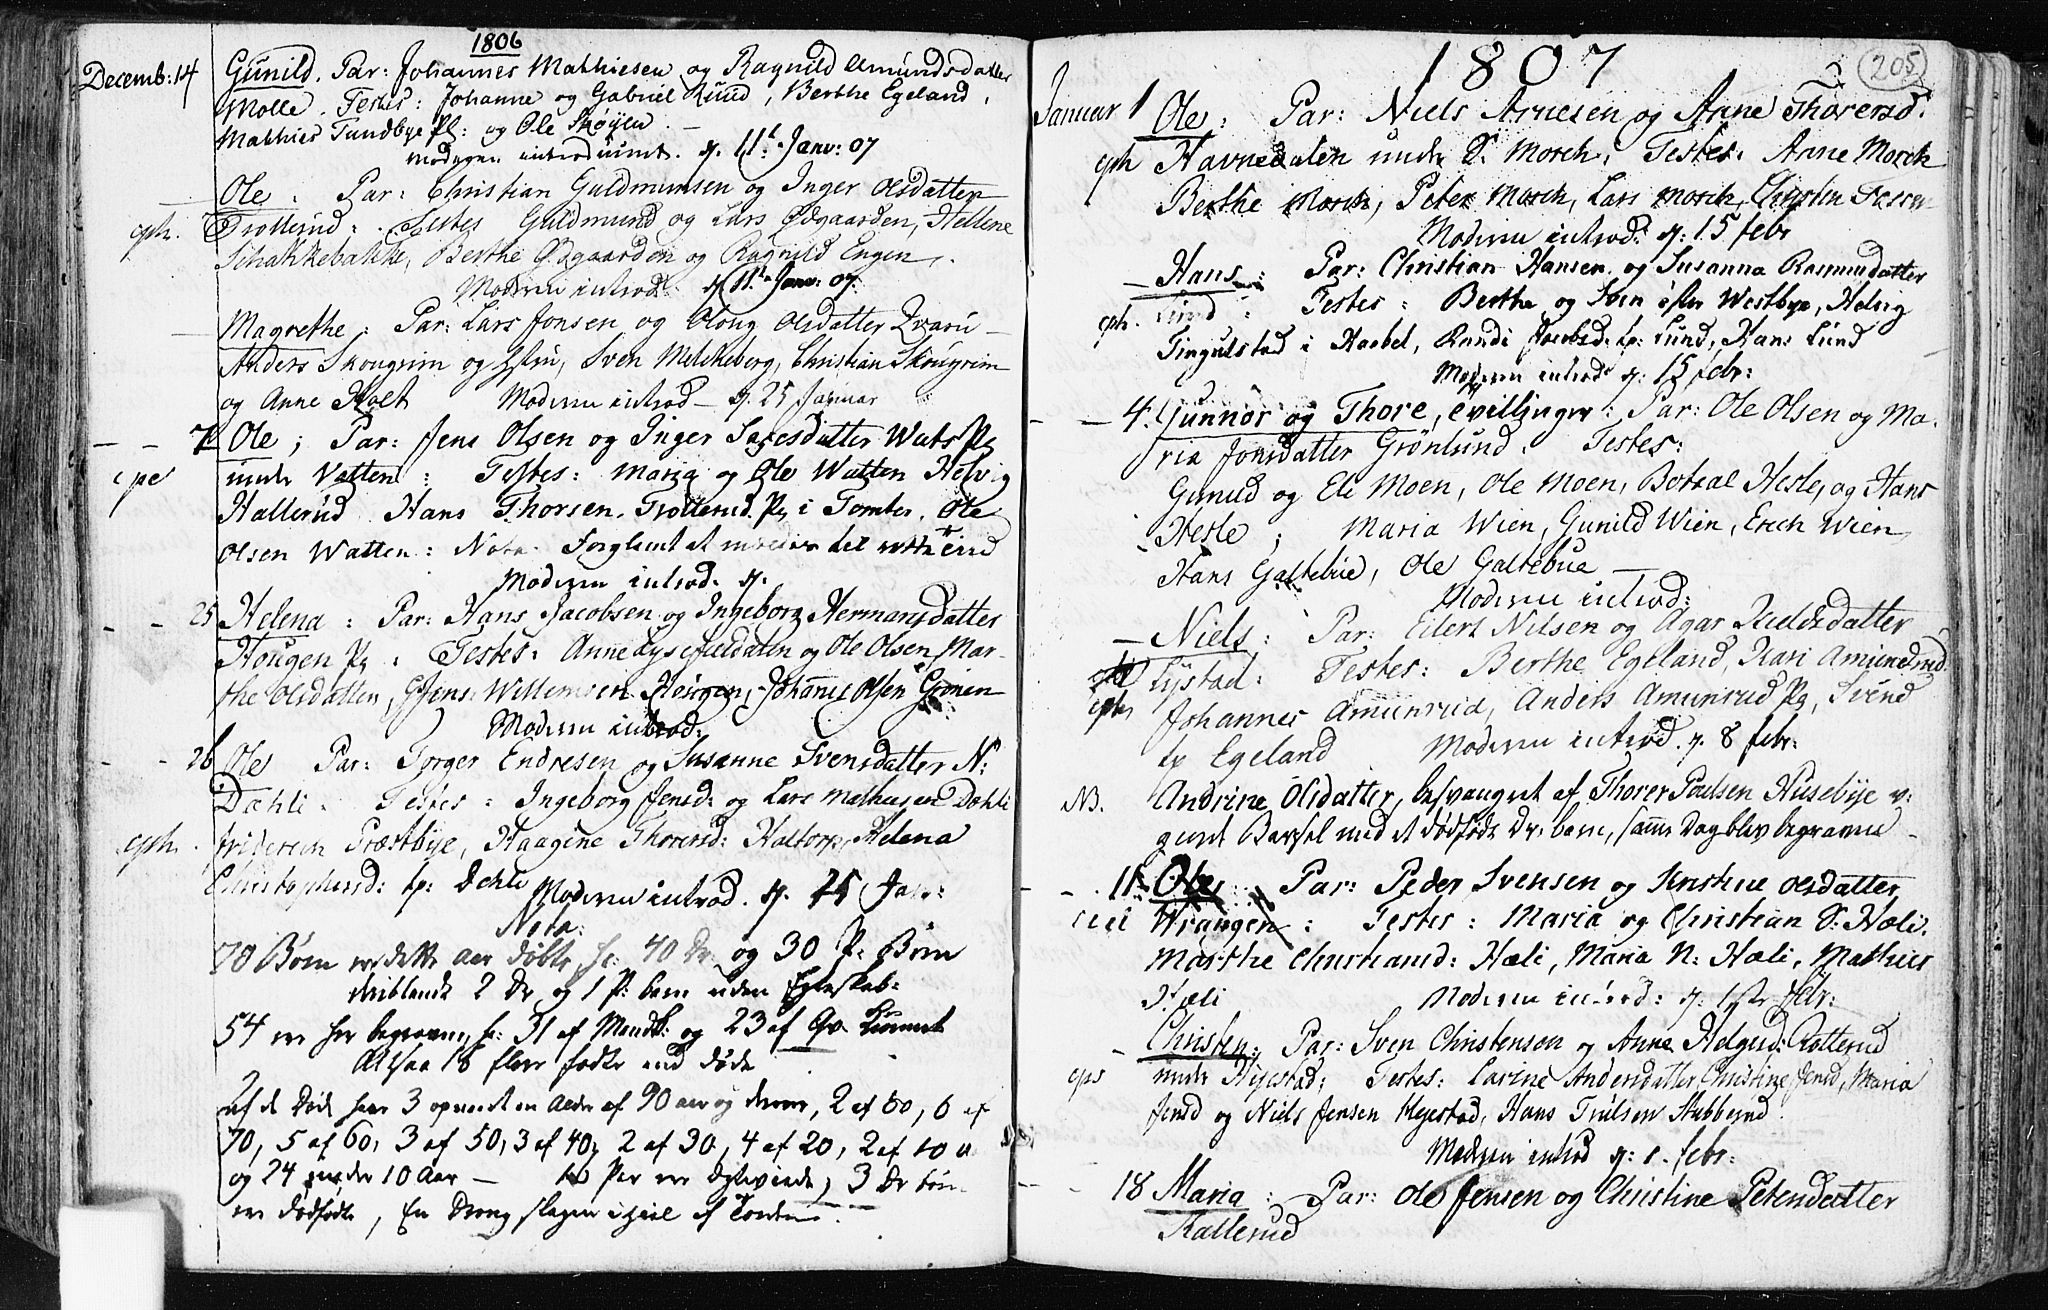 1806
Decemb: 14 Gunild. Par: Johannes Mathiesen og Ragnild Amundsdatter
Molle. Testes: Johanne og Gabriel Ruud, Berthe Egeland,
Mathies Tundbye Pl: og Ole Skøyen
Moderen introduceret. d. 11te Janv: 07
Ole. Par: Christian Guldmunsen og Inger Olsdatter
eph. Trollerud: Testes Guldmund og Lars Ødgaarden, Hellene
Schakkebakke, Berthe Ødgaarden og Ragnild Engen.
Moderen introd: d. 11te Janv: 07.
Magrethe: Par: Lars Jonsen og Olong Olsdatter
Anders Skougrim og, Sven Melckeberg, Christian Skougrim
og Anne Holt Moderen introd d. 25 Januar
7 Ole; Par: Jens Olsen og Inger Larsdatter Wats Pg
under Vatten: Testes: Maria og Ole Watten Helvig
Hallerud Hans Thorsen. Trollerud. Pg i Tomter. Ole
Olsen Watten: Nota. Forglemt at
Moderen introd. d.
25 Helena: Par: Hans Jacobsen og Ingeborg Hermansdatter
Hougen Pg: Testes: Anne og Ole Olsen, Mar-
the Olsdatter, Jens Willemsen Hougen, Johannes Olsen Gronen
Moderen introd:
26 Ole Par: Torger Endresen og Susanne Svensdatter N:
Dæhli. Testes: Ingeborg Jensd: og Lars Mathiesen Dæhli
eph. Friderich Præstbye, Haagine Thorersd: Haltorp, Helena
Christophersd: tp: Dehli Moderen introd. d. 25 Jan:
Nota:
70 Børn ere dette aar døbte, se: 40 Dr. og 30 P. Børn
deriblandt 2 Dr og 1 P: barn uden Egteskab:
54 ere her begravne, se: 31 af Mandk: og 23 af Qv. Kiønnet
Altsaa 16 flere fødte end døde
af de Døde have 3 opnaaet en Alder af 90 aar og derover, 2 af 80, 6 af
70, 5 af 60, 3 af 50, 3 af 40, 2 af 30, 4 af 20, 2 af 10
og 24 under 10 Aar — Par ere, 3 Dr børn
ere dødfødte, En Dreng slagen ihiel af Torden.
1807
205
Januar 1 Ole: Par: Niels Arnesen og Anne Thorersd.
eph Havnedalen under S. Morch: Testes: Anne Morch
Berthe Morch, Peter Morch, Lars Morch, Christen
Moderen introd: d: 15 febr
Hans: Par: Christian Hansen. og Susanna Rasmusdatter
eph. Lund: Testes: Berthe og Sven Westbye, Helvig
Tingulstad i Haabel, Randi Jacobsd: tp: Lund, Hans Lund
Moderen introd d: 15 febr:
4. Gunnor og Thore, tvillinger: Par: Ole Olsen og Ma-
ria Jonsdatter Grönlund. Testes:
Gunild og Eli Moen, Ole Moen, Botval Hesle, og Hans
Hesle; Maria Wien, Gunild Wien, Erich Wien,
Hans Galtebüe, Ole Galtebue
Moderen introd:
Niels: Par: Eilert Nilsen og Agar
Lystad: Testes: Berthe Egeland, Kari Amundrud.
eph Johannes Amunrud, Anders Amunrud Pg, Svend
tp Egeland Moderen introd. d. 8 febr:
NB. Andrine Olsdatter, besvangret af Thorer Poulsen Husebye
giort Barsel med et dødfødt Dr: barn, samme Dag blev begraven
11 Ole: Par: Peder Svensen og Kristine Olsdatter
Wrangen: Testes: Maria og Christian S: Hæli.
Marthe Christiansd: Hæli, Maria N: Hæli, Mathies
Hæli Moderen introd: d. 1ste febr:
Christen: Par: Sven Christensen og Anne Helgesd: Trollerud
eps under Hyestad; Testes: Larine Andersdatter, Christine Jensd, Maria
Jensd og Niels Jensen Heyestad, Hans Trulsen Stubberud.
Moderen introd d: 1. febr:
18 Maria: Par: Ole Jensen og Christine Petersdatter
Kallerud